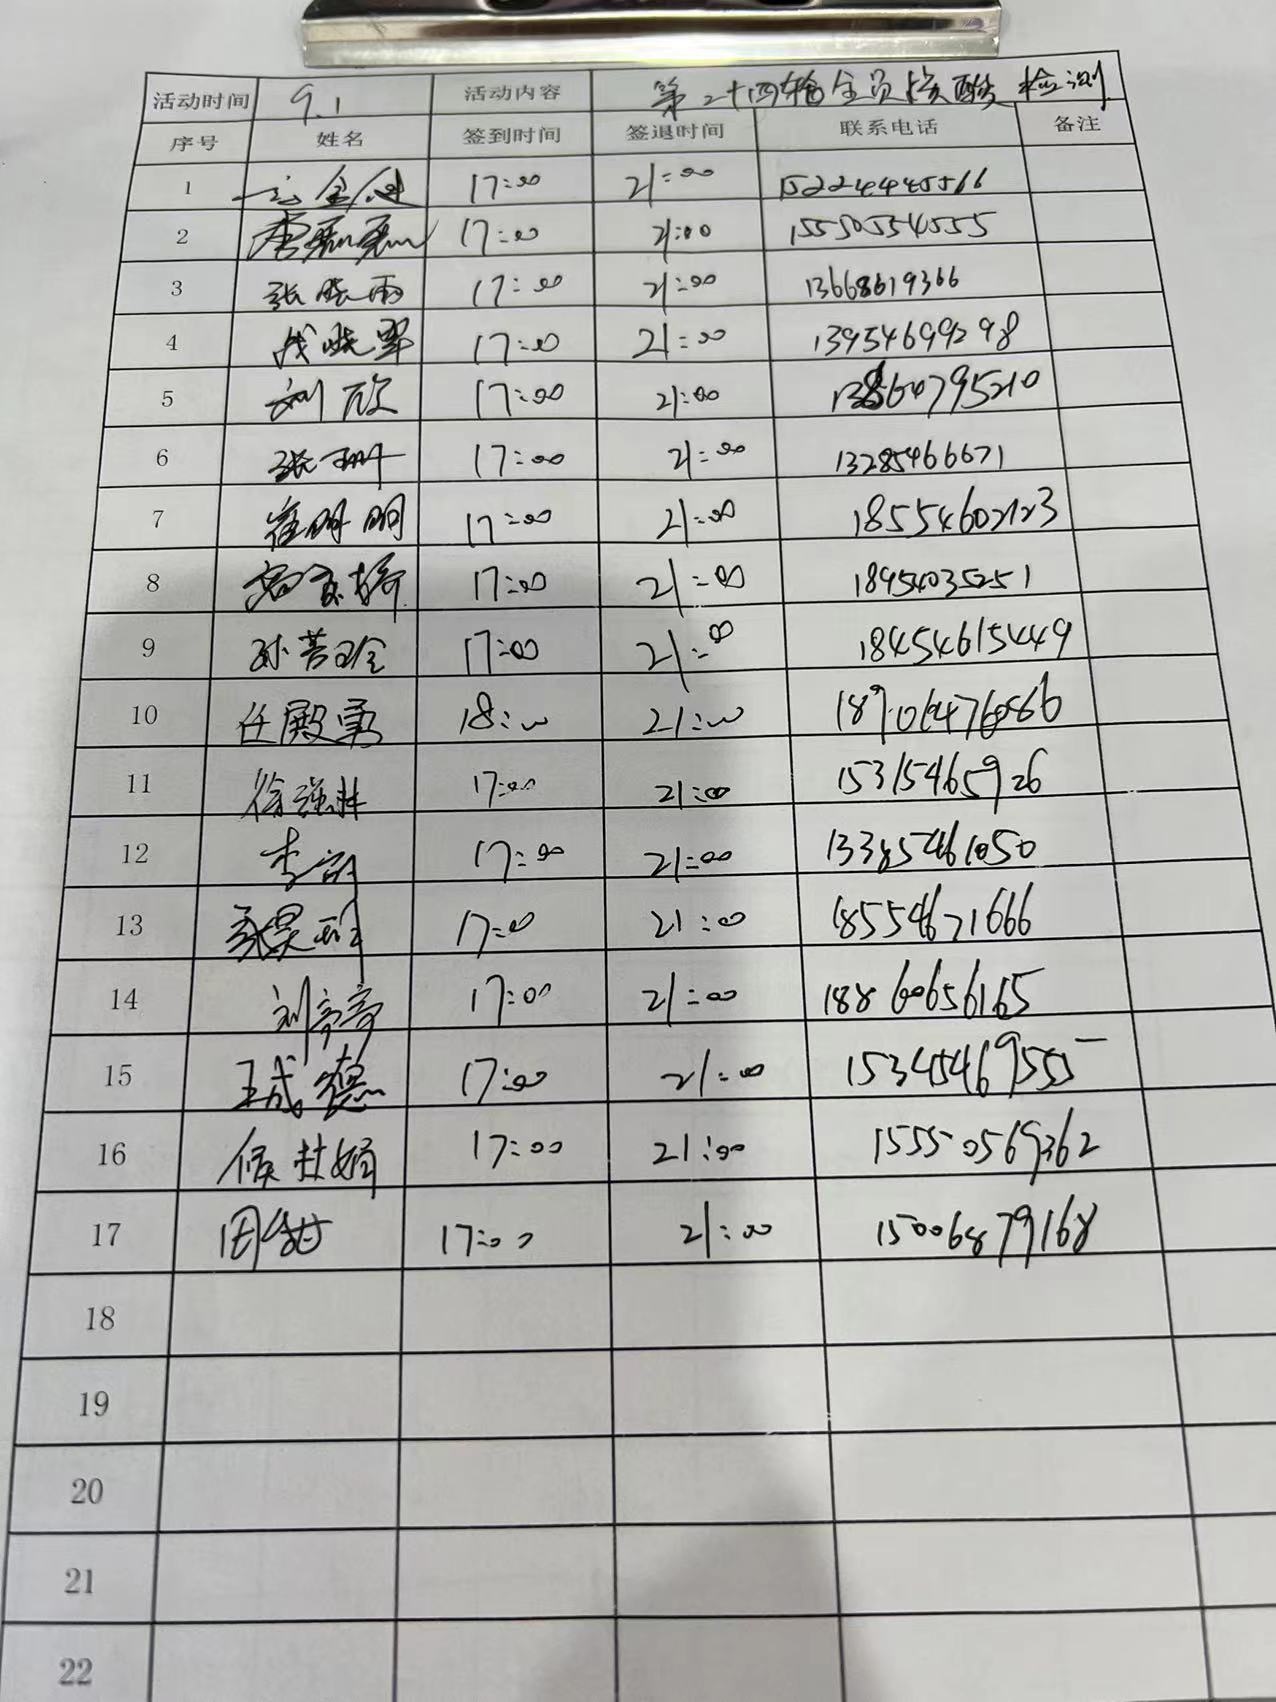 活动时间 9.1 活动内容 第二十四轮全员核酸检测
序号 姓名 签到时间 签退时间 联系电话 备注
1 17:00 21:00 15224445566
2 17:00 21:00 15550554555
3 张晓雨 17:00 21:00 13668619366
4 晓翠 17:00 21:00 13954699298
5 刘欣 17:00 21:00 13864795210
6 张珊 17:00 21:00 13285466671
7 崔明明 17:00 21:00 18554602123
8 17:00 21:00 18954035251
9 孙若瑜 17:00 21:00 18454615449
10 任殿勇 18:00 21:00
11 徐强林 17:00 21:00 15315465926
12 李 17:00 21:00 13385461050
13 张昊 17:00 21:00 18554671666
14 刘亭亭 17:00 21:00 18860656165
15 王成德 17:00 21:00 15345469555
16 侯娟 17:00 21:00 15550569362
17 田甜 17:00 21:00 15006879168
18
19
20
21
22